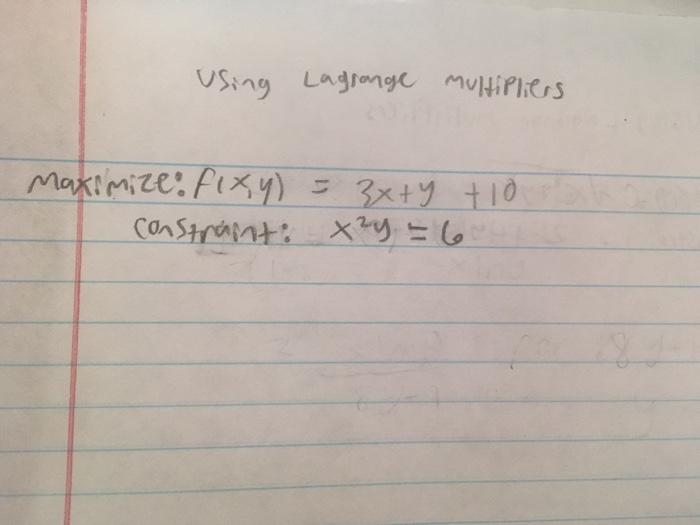 Using Lagrange multipliers
Maximize: f(x,y) = 3x+y +10
constraint: x²y = 6